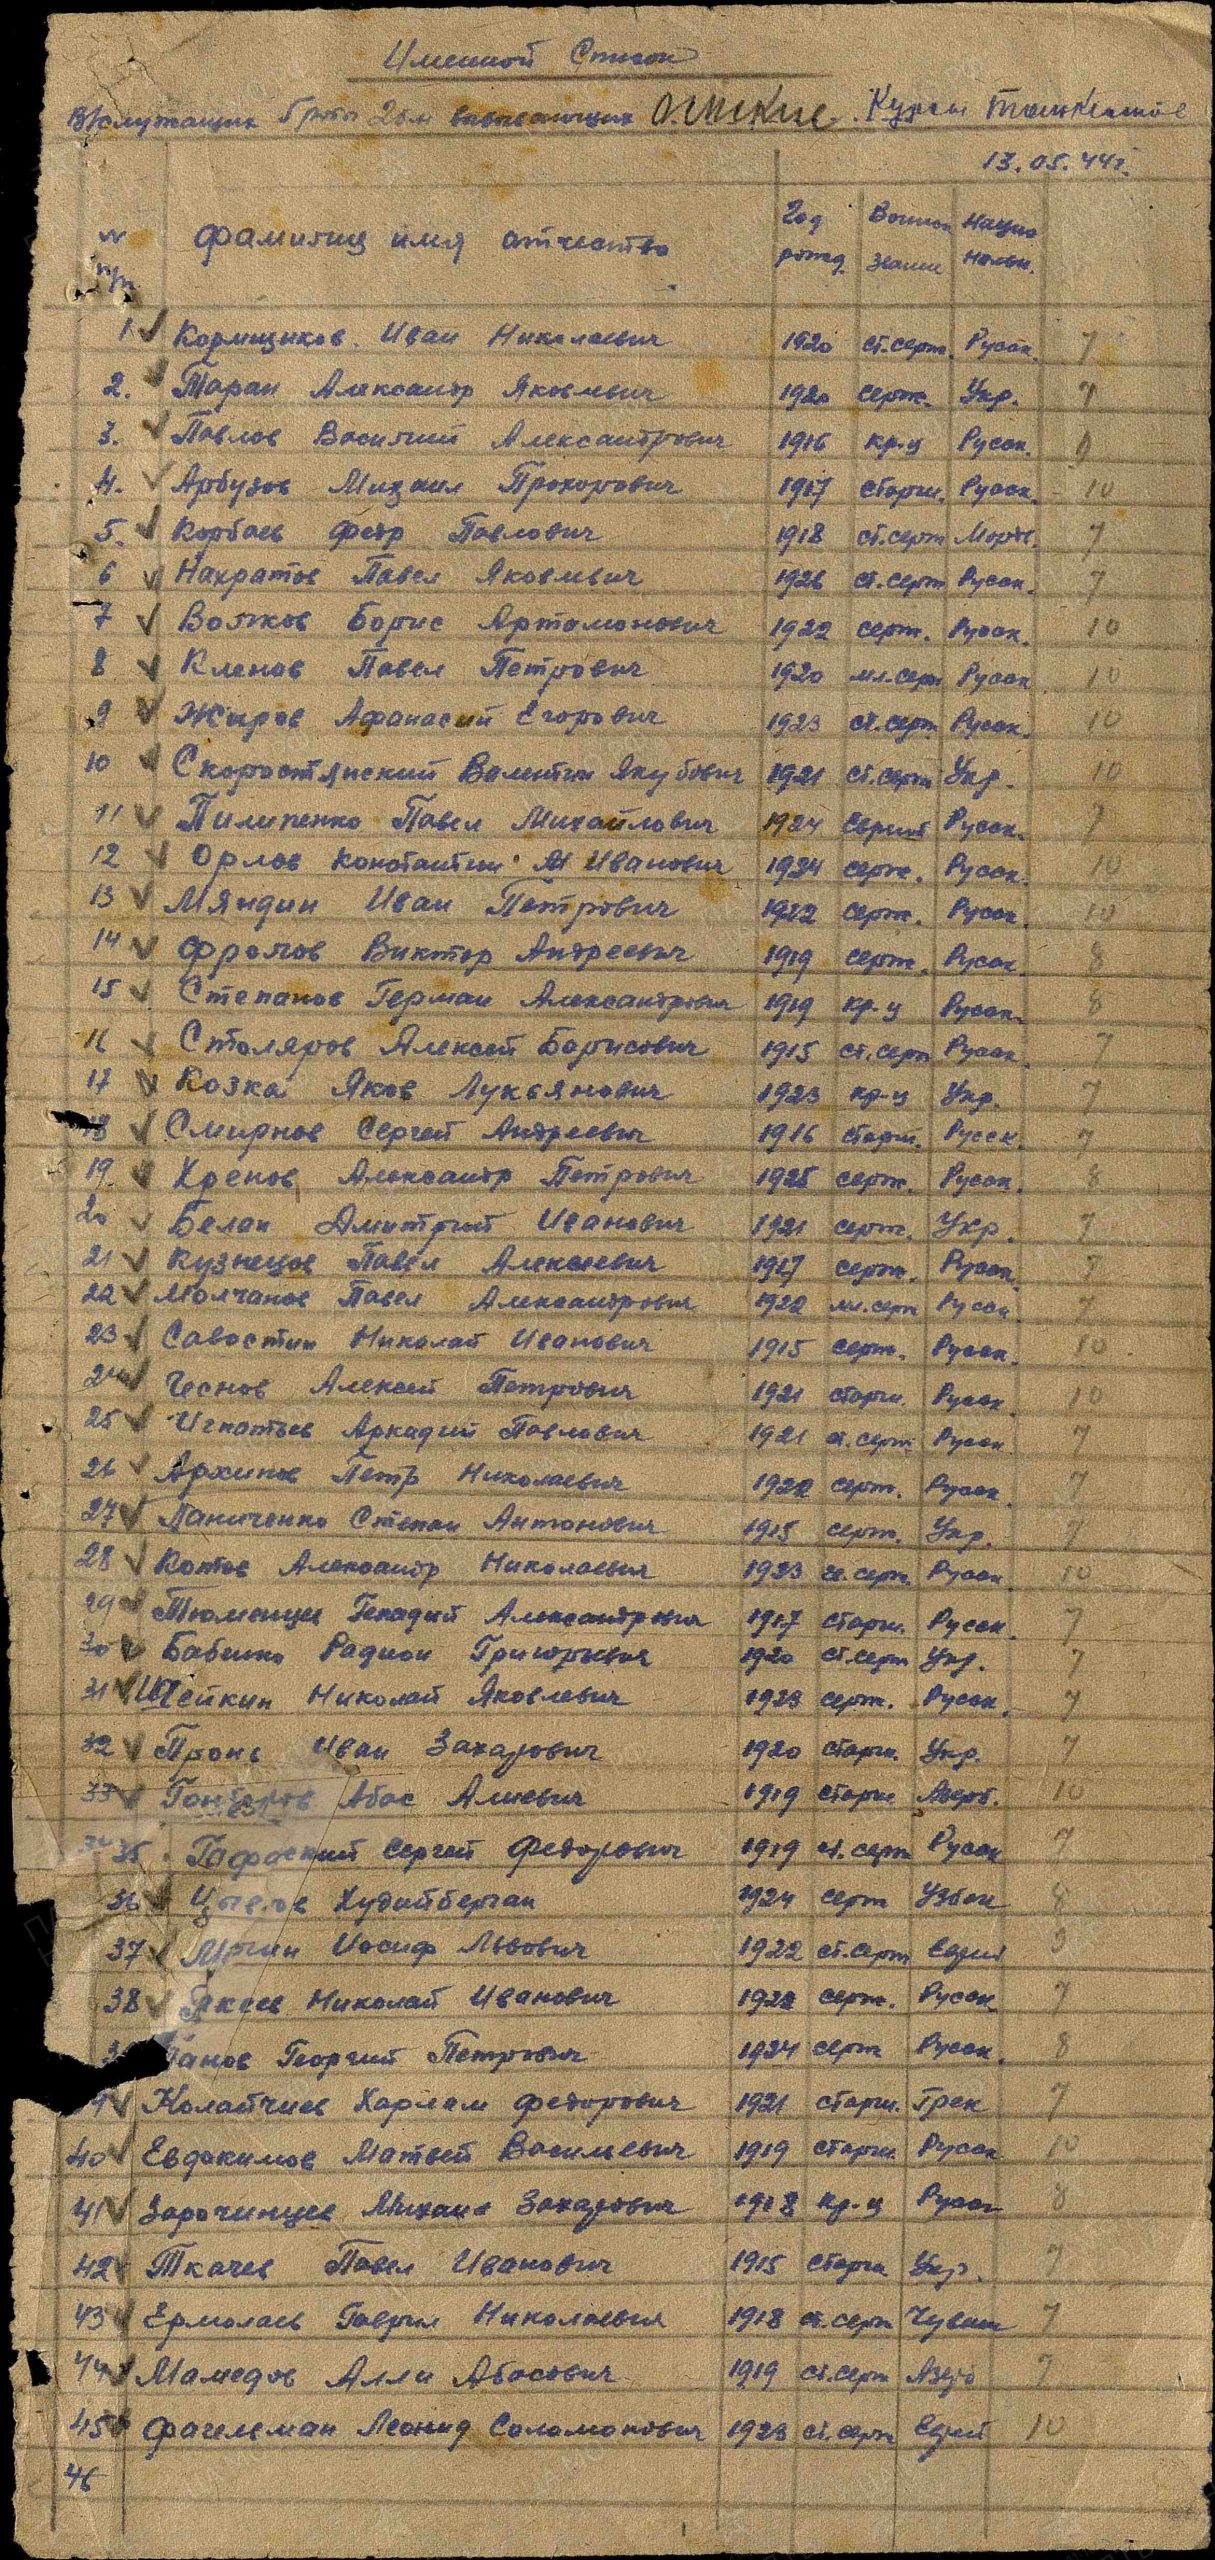 Именной Список
В/служащих 2б-н выбывающих Курсы
13.05.44г.
№ п/п Фамилия имя отчество Год рожд. Воинск звание Нацио нальн.
1 Кормщиков Иван Николаевич 1920 ст.серж. Русск. 7
2. Таран Александр Яковлевич 1920 серж. Укр. 7
3. Павлов Василий Александрович 1916 кр-ц Русск. 9
4. Арбузов Михаил Прохорович 1917 старш. Русск. 10
5. Корбаев Федр Павлович 1918 ст.серж Морд. 7
6 Нахратов Павел Яковлевич 1926 ст.серж Русск. 7
7 Волков Борис Артомонович 1922 серж. Русск. 10
8 Кленов Павел Петрович 1920 мл.серж Русск 10
9 Жиров Афанасий Егорович 1923 ст.серж Русск. 10
10 Скоростянский Валентин Якубович 1921 ст.серж Укр. 10
11 Пилипенко Павел Михайлович 1924 Русск. 7
12 Орлов Константин Иванович 1924 серж. Русск. 10
13 Мяндин Иван Петрович 1922 серж. Русск. 10
14 Фролов Виктор Андреевич 1919 серж. Русск. 8
15 Степанов Герман Александрович 1919 кр-ц Русск. 8
16 Столяров Алексей Борисович 1915 ст.серж Русск. 7
17 Козка Яков Лукьянович 1923 кр-ц Укр. 7
18 Смирнов Сергей Андреевич 1916 старш. Русск. 7
19. Хренов Александр Петрович 1925 серж. Русск. 8
20 Белан Дмитрий Иванович 1921 серж. Укр. 7
21 Кузнецов Павел Алексеевич 1917 серж. Русск. 7
22 Молчанов Павел Александрович 1922 мл.серж Русск 7
23 Савостин Николай Иванович 1915 серж. Русск. 10
24 Чеснов Алексей Петрович 1921 старш. Русск. 10
25 Игнатьев Аркадий Павлович 1921 ст.серж Русск. 7
26 Архипов Петр Николаевич 1922 серж. Русск. 7
27 Паниченко Степан Антонович 1915 серж. Укр. 7
28 Котов Александр Николаевич 1923 ст.серж. Русск. 10
29 Тюменцев Генадий Александрович 1917 старш. Русск. 7
30 Бабенко Радион Григорьевич 1920 ст.серж Укр. 7
31 Шейкин Николай Яковлевич 1923 серж. Русск. 7
32 Пронь Иван Захарович 1920 старш. Укр. 7
33 Абас Алиевич 1919 старш. Азерб. 10
35 Сергей Федорович 1919 ст.серж Русск 7
36 Худайберган 1924 серж Узбек 8
37 Иосиф Львович 1922 ст.серж Еврей 9
38 Николай Иванович 1922 серж. Русск 7
Панов Георгий Петрович 1924 серж Русск. 8
Калайчиев Харлам Федорович 1921 старш. Грек 7
40 Евдокимов Матвей Васильевич 1919 старш. Русск 10
41 Зарочинцев Михаил Захарович 1918 кр-ц Русск 8
42 Ткачев Павел Иванович 1915 старш Укр. 7
43 Ермолаев Гаврил Николаевич 1918 ст.серж Чуваш 7
44 Мамедов Алли Абасович 1919 ст.серж Азерб 7
45 Фагельман Леонид Соломонович 1923 ст.серж Еврей 10
46